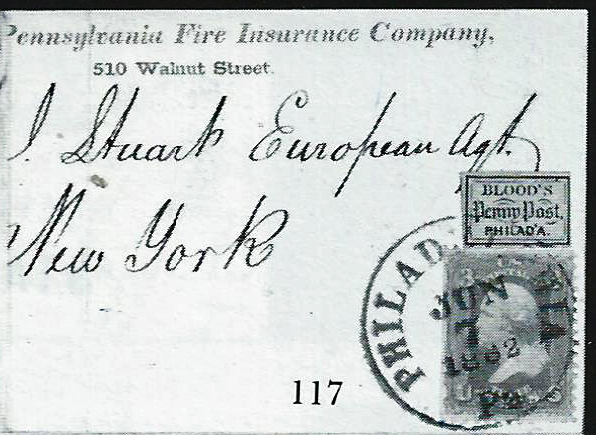 Pennsylvania Fire Insurance Company,
510 Walnut Street.
J. Stuart European Agt.
New York
BLOOD'S
Penny Post,
PHILAD'A.
PHILAD
JUN
1862
Pa
117